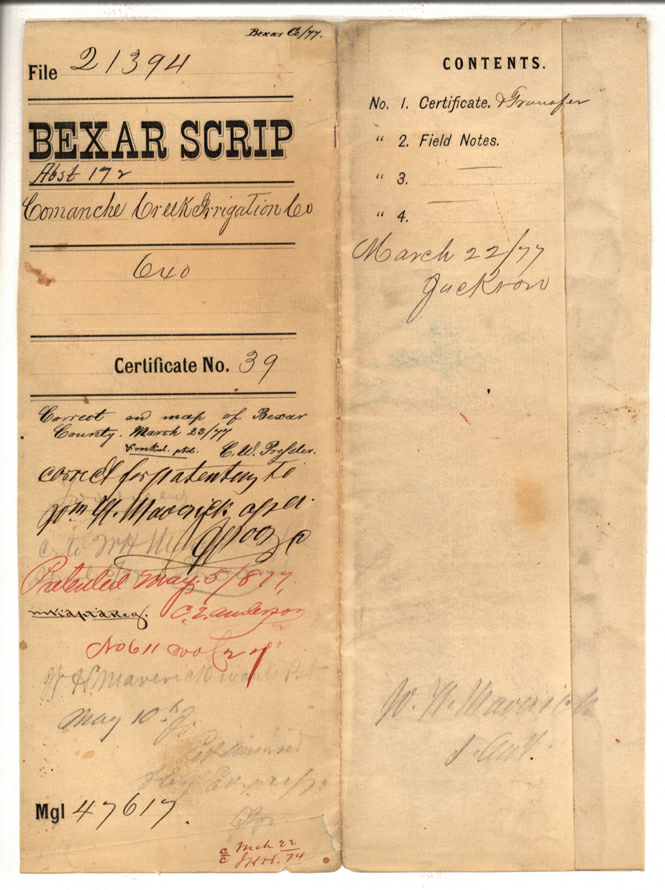 Bexar Co/77.
File 21394
BEXAR SCRIP
Abst 172
Comanche Creek Irrigation Co
640
Certificate No. 39
Correct on map of Bexar
County. March 23/77
C.W. Pressler.
correct for patenting to
Wm H. Maverick assee.
Patented May 5/877.
C.E. Anderson
No 611 Vol 24
W H Maverick wants Pat
May 10th
Mgl 47617.
Mch 22
74
CONTENTS.
No. 1. Certificate. & Transfer
" 2. Field Notes.
" 3.
" 4.
March 22/77
Jackson
W. H. Maverick